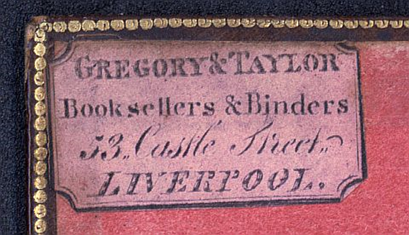 GREGORY & TAYLOR
Booksellers & Binders
53, Castle Street,
LIVERPOOL.